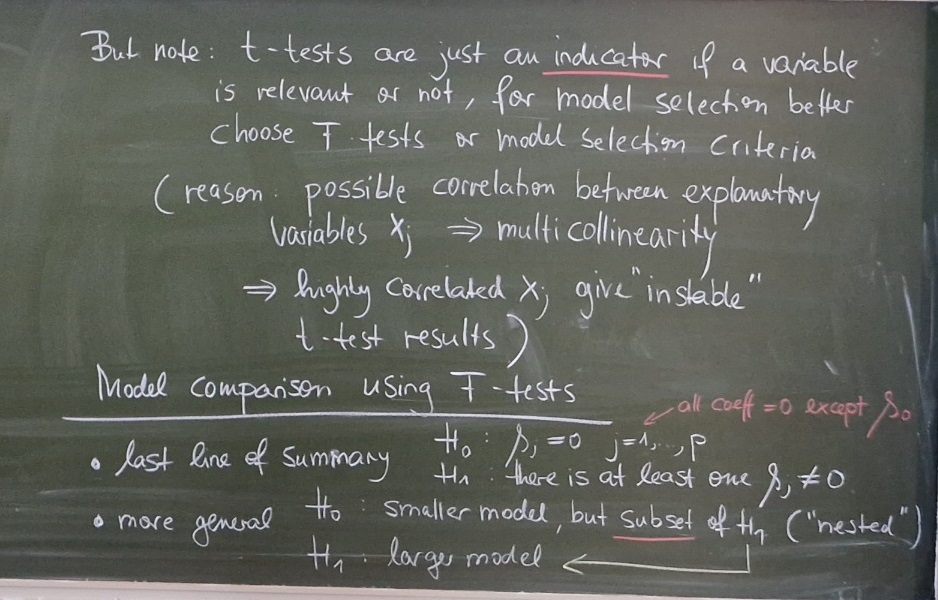 But note: t-tests are just an indicator if a variable
is relevant or not, for model selection better
choose F-tests or model selection criteria
(reason: possible correlation between explanatory
variables xj ⇒ multicollinearity
⇒ highly correlated xj give "instable"
t-test results)
Model comparison using F-tests
all coeff = 0 except β0
• last line of summary H0: βj = 0 j=1,...,p
H1: there is at least one βj ≠ 0
• more general H0: smaller model, but subset of H1 ("nested")
H1: larger model